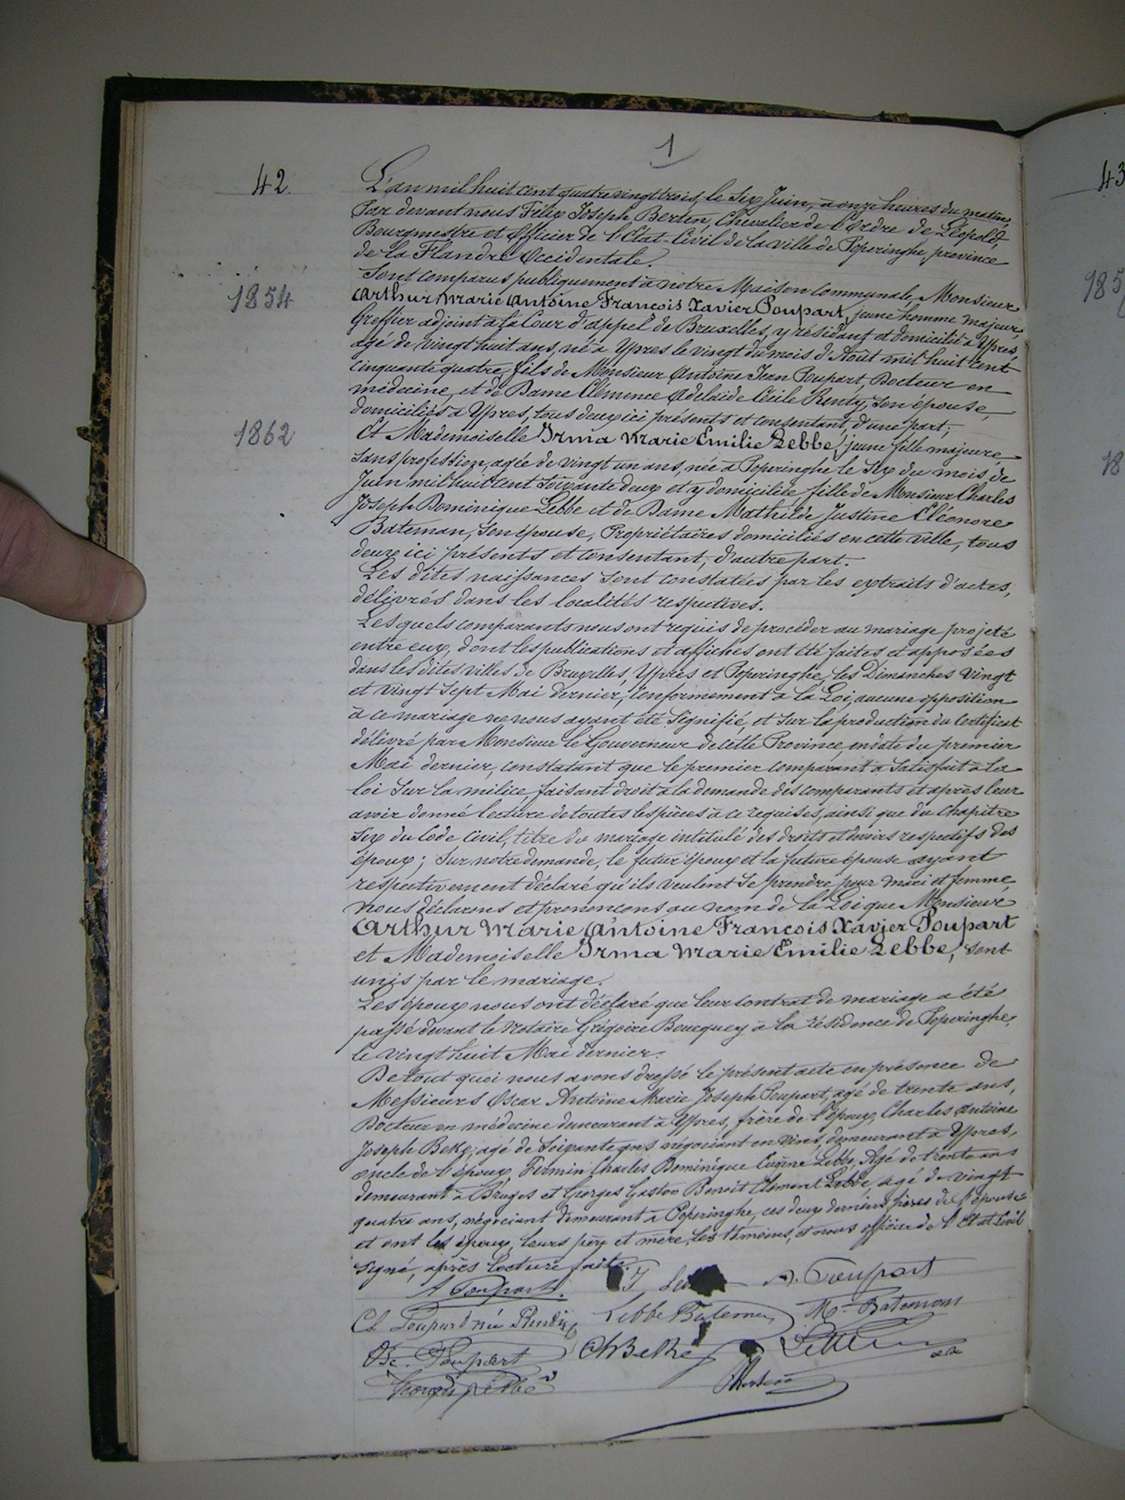 1
42
L'an mil huit cent quatre vingt trois, le Six Juin, à onze heures du matin,
Par devant nous Félix Joseph Berten, Chevalier de l'Ordre de Léopold,
Bourgmestre et Officier de l'Etat-Civil de la ville de Poperinghe, province
de la Flandre Occidentale.
Sont comparus publiquement à notre Maison communale, Monsieur
1854
Arthur Marie Antoine François Xavier Poupart, jeune homme majeur,
Greffier adjoint à la Cour d'appel de Bruxelles, y résidant et domicilié à Ypres,
agé de vingt huit ans, né à Ypres le vingt du mois d'Août mil huit cent
cinquante quatre, fils de Monsieur Antoine Jean Poupart, Docteur en
médecine, et de Dame Clémence Adelaïde Cécile Renty, son épouse,
domiciliés à Ypres, tous deux ici présents et consentant, d'une part;
1862
Et Mademoiselle Irma Marie Emilie Lebbe, jeune fille majeure,
sans profession, agée de vingt un ans, née à Poperinghe le Six du mois de
Juin mil huit cent soixante deux et y domiciliée, fille de Monsieur Charles
Joseph Dominique Lebbe et de Dame Mathilde Justine Eléonore
Bateman, son épouse, Propriétaires domiciliés en cette ville, tous
deux ici présents et consentant, d'autre part.
Les dites naissances sont constatées par les extraits d'actes,
délivrés dans les localités respectives.
Lesquels comparants nous ont requis de procéder au mariage projeté
entre eux, dont les publications et affiches ont été faites et apposées
dans les dites villes de Bruxelles, Ypres et Poperinghe, les Dimanches vingt
et vingt sept Mai dernier, conformément à la Loi, aucune opposition
à ce mariage ne nous ayant été signifié, et sur la production du Certificat
délivré par Monsieur le Gouverneur de cette Province, en date du premier
Mai dernier, constatant que le premier comparant a satisfait à la
loi sur la milice, faisant droit à la demande des comparants et après leur
avoir donné lecture de toutes les pièces à ce requises, ainsi que du chapitre
six du Code Civil, titre du mariage intitulé des droits et devoirs respectifs des
époux; sur notre demande, le futur époux et la future épouse ayant
respectivement déclaré qu'ils veulent se prendre pour mari et femme,
nous déclarons et prononçons au nom de la Loi que Monsieur
Arthur Marie Antoine François Xavier Poupart
et Mademoiselle Irma Marie Emilie Lebbe, sont
unis par le mariage.
Les époux nous ont déclaré que leur contrat de mariage a été
passé devant le Notaire Grégoire Boucquey à la résidence de Poperinghe,
le vingt huit Mai dernier.
De tout quoi nous avons dressé le présent acte en présence de
Messieurs Oscar Antoine Marie Joseph Poupart, agé de trente ans,
Docteur en médecine demeurant à Ypres, frère de l'époux, Charles Antoine
Joseph Beke, agé de soixante ans négociant en vins, demeurant à Ypres,
oncle de l'époux, Firmin Charles Dominique Eugène Lebbe, agé de trente ans
demeurant à Bruges et Georges Gaston Benoit Clément Lebbe, agé de vingt
quatre ans, négociant demeurant à Poperinghe, ces deux derniers frères de l'épouse
et ont les époux, leurs père et mère, les témoins, et nous officier de l'Etat Civil
signé, après lecture faite.
A Poupart. A. Poupart
Cl Poupart née Lebbe Bateman M. Bateman
Osc. Poupart Ch Beke
Georges Lebbe
43
185
18